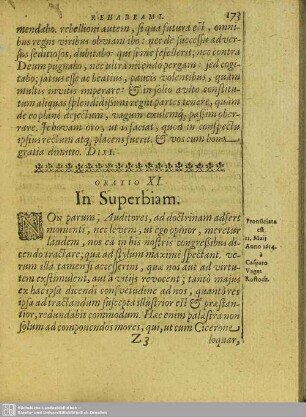 REHABEAMI. 173
mendabo. rebellioni autem, si qua futura est, omni-
bus regni viribus obviam ibo: nec de successu adver-
sus seditiosos, dubitabo: qui sine scelerit, nec contra
Deum pugnabo, nec ultra intento pergam: sed cogi-
tabo, satius esse ac beatius, paucis volentibus, quàm
multis invitis imperare: & in solio avito constitu-
tum aliquas splendidissimi regni partes tenere, quàm
de eo planè dejectum, vagum exulemq; passim ober-
rare. Jehovam oro, ut is faciat, quod in conspectu
ipsius rectum atq; placens fuerit. & vos cum bona
gratia dimitto. DIXI.
ORATIO XI.
In Superbiam.
NON parum, Auditores, ad doctrinam adfert
momenti, nec levem, ut ego opinor, meretur
laudem, nos ea in his nostris congressibus di-
cendo tractare; quæ ad stylum maximè spectant.
verum illa tamen si accesserint, quæ nos aut ad virtu-
tem exstimulent, aut à vitijs revocent; tantò major
ex hac ipsa dicendi consvetudine ad nos, quantò res
ipsa ad tractandum suscepta illustrior est & præstan-
tior, redundabit commodum. Hæc enim palæstra non
solùm ad componendos mores, qui, ut cum Cicerone
Z 3 loquar,
Pronunciata
est
11. Maij
Anno 1614.
à
Casparo
Voget
Rostoch.